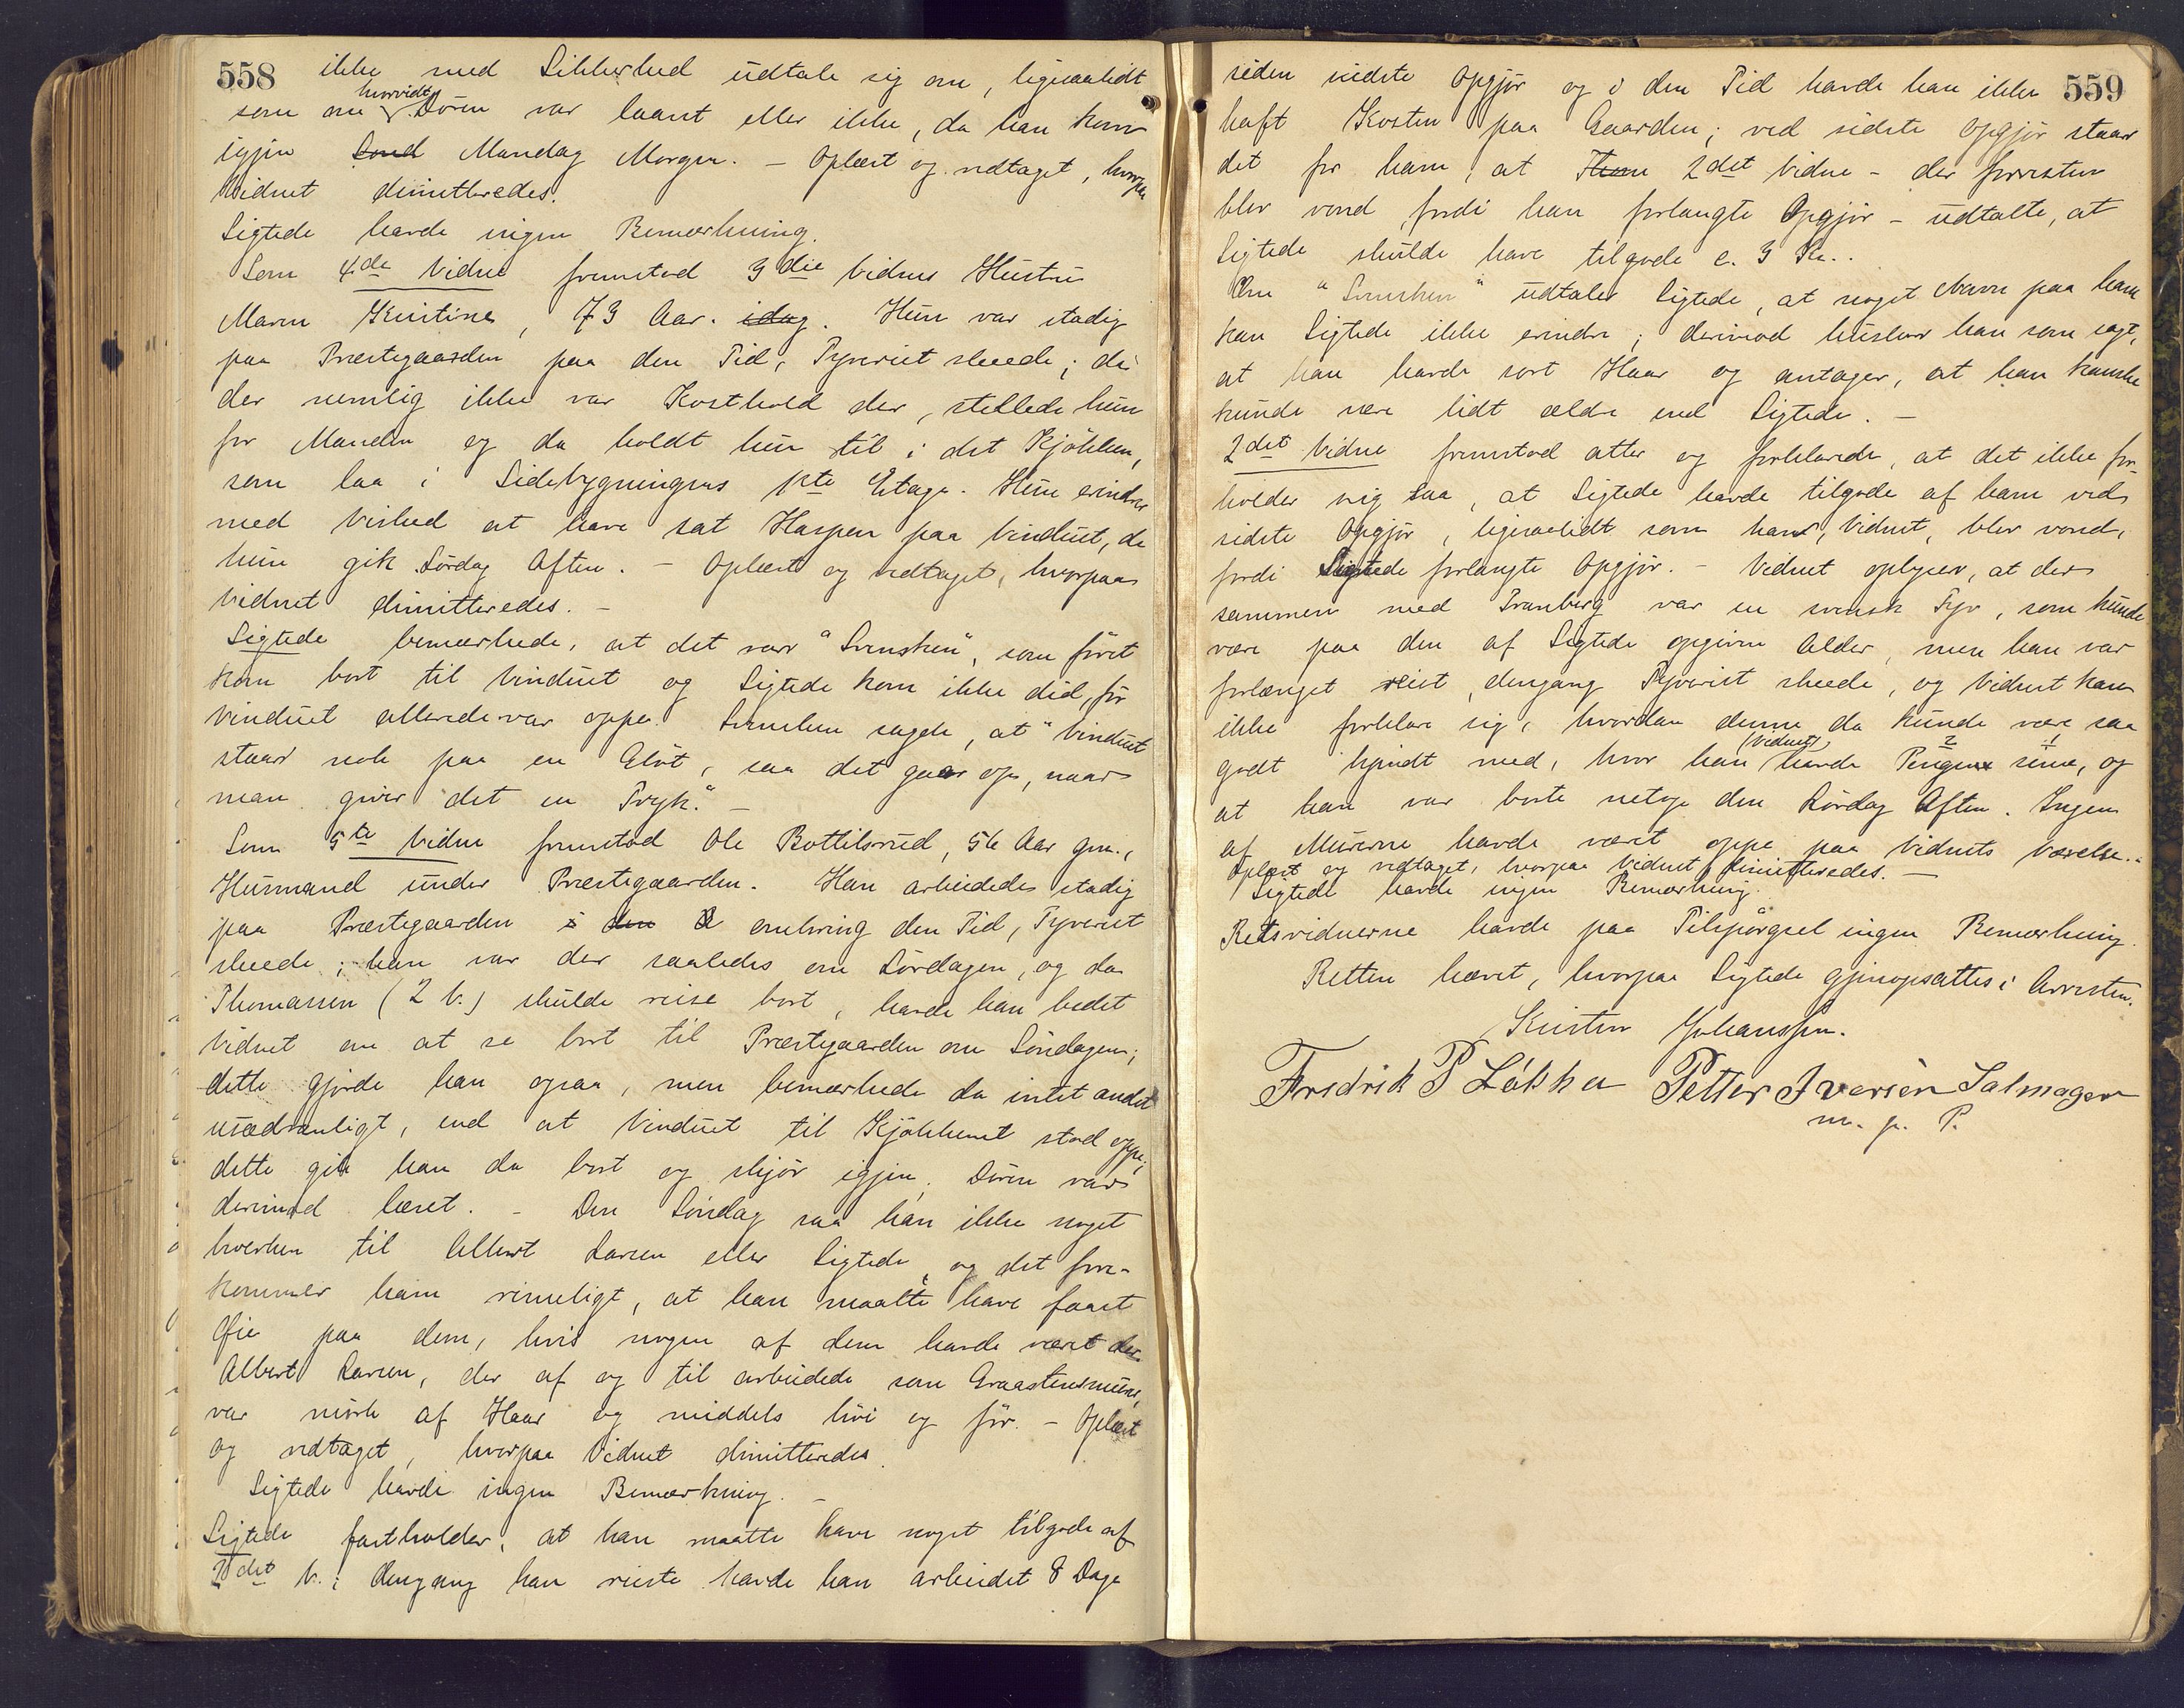 558
ikke med Sikkerhed udtale sig om, ligesaalidt
hvorvidt
som om Døren var laast eller ikke, da han kom
igjen Sønd Mandag Morgen. - Oplæst og vedtaget, hvorpaa
Vidnet dimitteredes.
Sigtede havde ingen Bemærkning.
Som 4de Vidne fremstod 3die Vidnes Hustru
Maren Kristine, 73 Aar. idag. Hun var stadig
paa Præstegaarden paa den Tid, Tyveriet skeede; da
der nemlig ikke var Kosthold der, stellede hun
for Manden og da holdt hun til i det Kjøkken,
som laa i Sidebygningens 1ste Etage. Hun erindrer
med Vished at have sat Haspen paa Vinduet, da
hun gik Lørdag Aften. - Oplæst og vedtaget, hvorpaa
Vidnet dimitteredes. -
Sigtede bemærkede, at det var "Svensken", som først
kom bort til Vinduet og Sigtede kom ikke did, før
Vinduet allerede var oppe. Svensken sagde, at "Vinduet
staar nok paa en Gløt, saa det gaar op, naar
man giver det en Tryk." -
Som 5te Vidne fremstod Ole Bottilsrud, 56 Aar gm.,
Husmand under Præstegaarden. Han arbeidede stadig
paa Præstegaarden i den O omkring den Tid, Tyveriet
skeede; han var der saaledes om Lørdagen, og da
Thomassen (2 V.) skulde reise bort, havde han bedet
Vidnet om at se bort til Præstegaarden om Søndagen;
dette gjorde han ogsaa, men bemærkede da intet andet
usædvanligt, end at Vinduet til Kjøkkenet stod oppe;
dette gik han da bort og skjøv igjen. Døren var
derimod læset. - Den Søndag saa han ikke noget
hverken til Albert Larsen eller Sigtede, og det fore-
kommer ham rimeligt, at han maatte have faaet
Øie paa dem, hvis nogen af dem havde været der.
Albert Larsen, der af og til arbeidede som Graastensmurer,
var mørk af Haar og middels høi og før. - Oplæst
og vedtaget, hvorpaa Vidnet dimitteredes.
Sigtede havde ingen Bemærkning. -
Sigtede fastholder, at han maatte have noget tilgode af
2det V.; dengang han reiste havde han arbeidet 8 Dage
559
siden sidste Opgjør og i den Tid havde han ikke
haft Kosten paa Gaarden; ved sidste Opgjør staar
det for ham, at Thom 2det Vidne - der forresten
blev vond, fordi han forlangte Opgjør - udtalte, at
Sigtede skulde have tilgode c. 3 Kr..
Om "Svensken" udtaler Sigtede, at noget Navn paa ham
kan Sigtede ikke erindre; derimod husker han som sagt,
at han havde sort Haar og antager, at han kanske
kunde være lidt ældre end Sigtede. -
2det Vidne fremstod atter og forklarede, at det ikke for-
holder sig saa, at Sigtede havde tilgode af ham ved
sidste Opgjør, ligesaalidt som han, Vidnet, blev vond,
fordi Sigtede forlangte Opgjør. - Vidnet oplyser, at der
sammen med Tranberg var en svensk Fyr, som kunde
være paa den af Sigtede opgivne Alder, men han var
forlænget reist, dengang Tyveriet skeede, og Vidnet kan
ikke forklare sig, hvordan denne da kunde være saa
(Vidnet) 2 1
godt kjendt med, hvor han havde Pengene sine, og
at han var borte netop den Lørdag Aften. Ingen
af Murerne havde været oppe paa Vidnets Værelse. -
Oplæst og vedtaget, hvorpaa Vidnet dimitteredes. -
Sigtede havde ingen Bemærkning.
Retsvidnerne havde paa Tilspørgsel ingen Bemærkning.
Retten hævet, hvorpaa Sigtede gjenopsattes i Arresten.
Kristen Johanssen.
Fredrik P Løkka Petter Iversen Salmager
m. p. P.